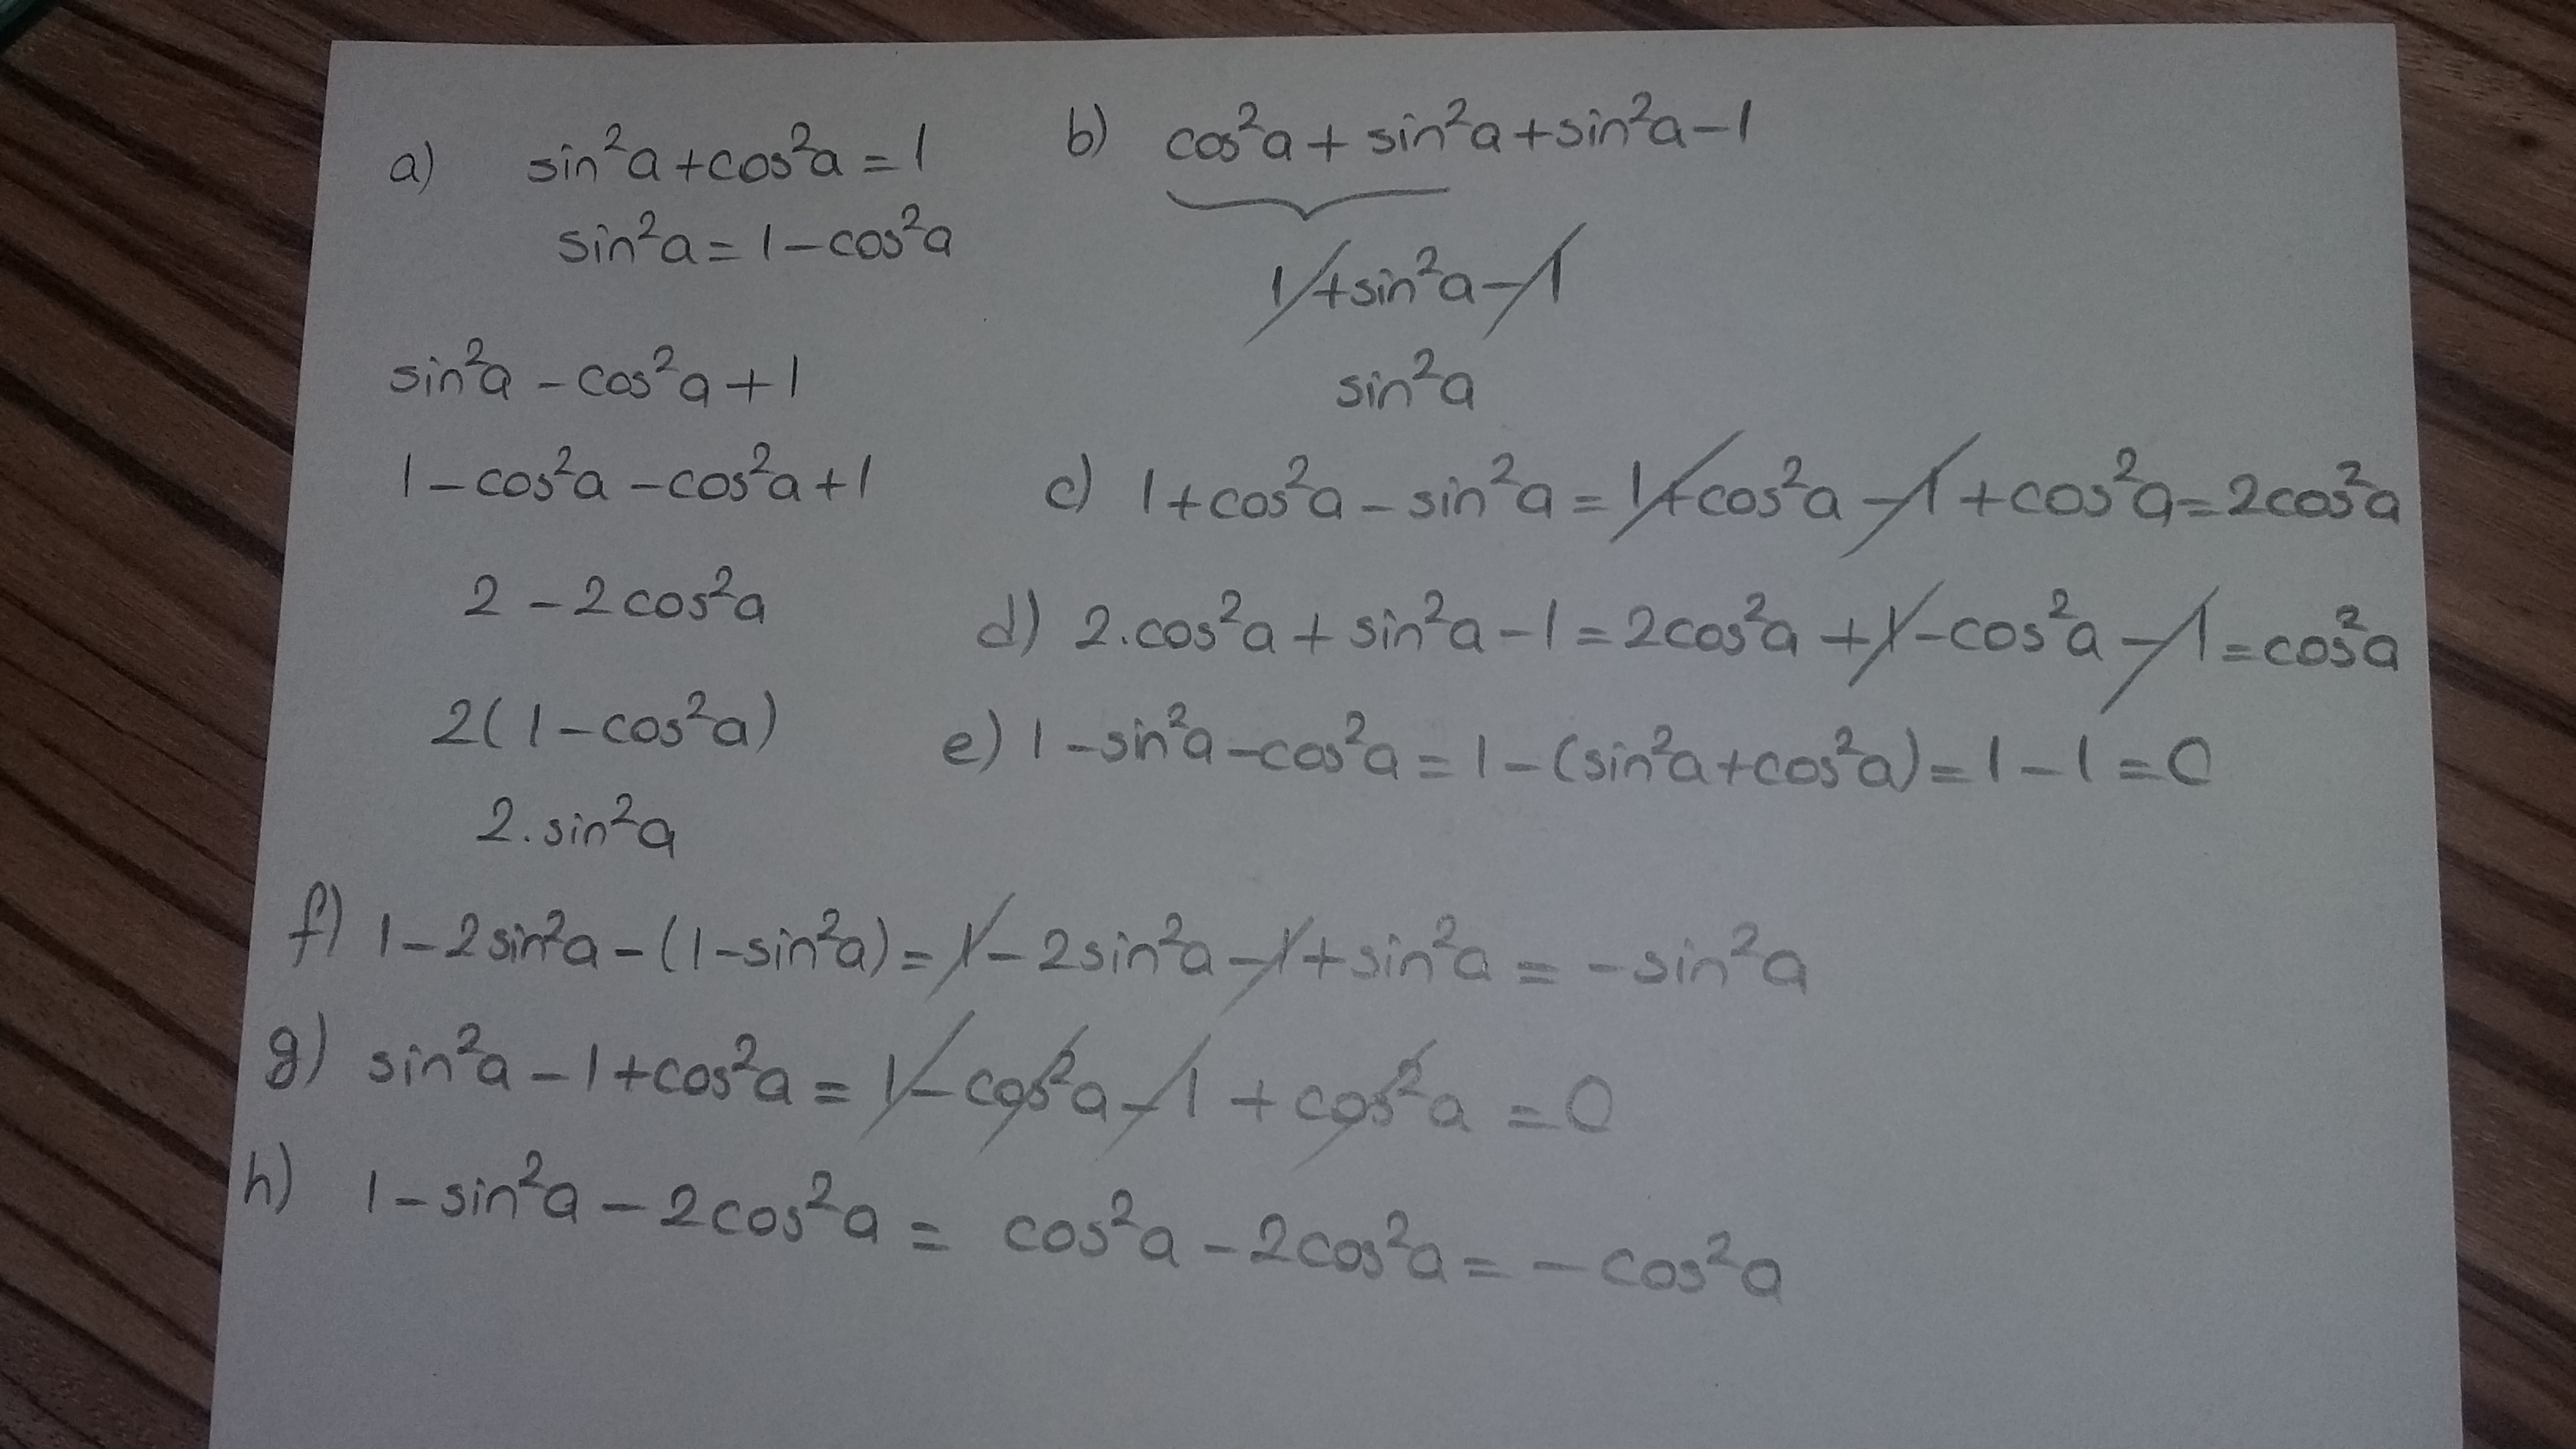 a) sin²a + cos²a = 1
sin²a = 1 - cos²a
sin²a - cos²a + 1
1 - cos²a - cos²a + 1
2 - 2cos²a
2(1 - cos²a)
2.sin²a
b) cos²a + sin²a + sin²a - 1
1 + sin²a - 1
sin²a
c) 1 + cos²a - sin²a = 1 + cos²a - 1 + cos²a = 2cos²a
d) 2.cos²a + sin²a - 1 = 2cos²a + 1 - cos²a - 1 = cos²a
e) 1 - sin²a - cos²a = 1 - (sin²a + cos²a) = 1 - 1 = 0
f) 1 - 2sin²a - (1 - sin²a) = 1 - 2sin²a - 1 + sin²a = -sin²a
g) sin²a - 1 + cos²a = 1 - cos²a - 1 + cos²a = 0
h) 1 - sin²a - 2cos²a = cos²a - 2cos²a = -cos²a